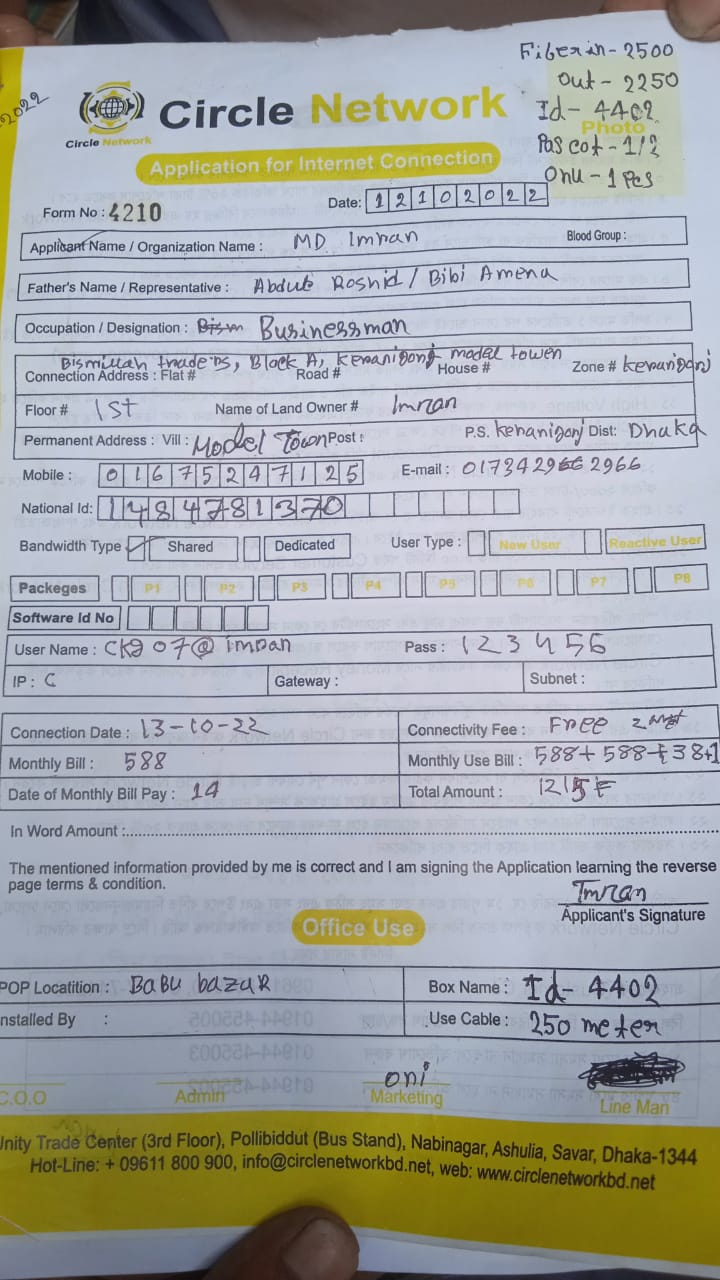 Fiber in - 2500
2022
Out - 2250
Id - 4402
Circle Network
Photo
Circle Network
Pas cot - 1/2
Application for Internet Connection
Onu - 1 Pcs
Form No : 4210
Date: 12102022
Applicant Name / Organization Name : MD Imran Blood Group :
Father's Name / Representative : Abdul Roshid / Bibi Amena
Occupation / Designation : Businessman
Bismillah traders, Block A, Keranigonj model towen
Connection Address : Flat # Road # House # Zone # Keranigonj
Floor # 1st Name of Land Owner # Imran
Permanent Address : Vill : Model Town Post : P.S. Keranigonj Dist: Dhaka
Mobile : 01675247125 E-mail : 017342966 2966
National Id: 1484781370
Bandwidth Type Shared Dedicated User Type : New User Reactive User
Packeges P1 P2 P3 P4 P5 P6 P7 P8
Software Id No
User Name : CKg07@imran Pass : 123456
IP : C Gateway : Subnet :
Connection Date : 13-10-22 Connectivity Fee : Free
Monthly Bill : 588 Monthly Use Bill : 588+588+38+1
Date of Monthly Bill Pay : 14 Total Amount : 1215
In Word Amount :
The mentioned information provided by me is correct and I am signing the Application learning the reverse
page terms & condition.
Imran
Applicant's Signature
Office Use
POP Locatition : Babu bazar Box Name : Id- 4402
nstalled By : Use Cable : 250 meter
oni
C.O.O Admin Marketing Line Man
Unity Trade Center (3rd Floor), Pollibiddut (Bus Stand), Nabinagar, Ashulia, Savar, Dhaka-1344
Hot-Line: + 09611 800 900, info@circlenetworkbd.net, web: www.circlenetworkbd.net